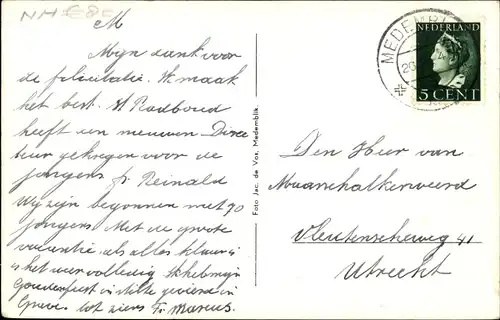 NH €8c
M
Mijn dank voor
de felicitatie. Ik maak
het best. St Radboud
heeft een nieuwen Direc
teur gekregen voor de
jongens fr. Reinald
Wij zijn begonnen met 90
jongens. Met de groote
vacantie, als alles klaar is
is het weer volledig. Ik heb mijn
Gouden feest in stilte gevierd in
Grave. tot ziens Fr. Marcus.
Foto Jac. de Vos, Medemblik.
MEDEMBLIK
NEDERLAND
5 CENT
Den Heer van
Maarschalkerweerd
Vleutenscheweg 41
Utrecht